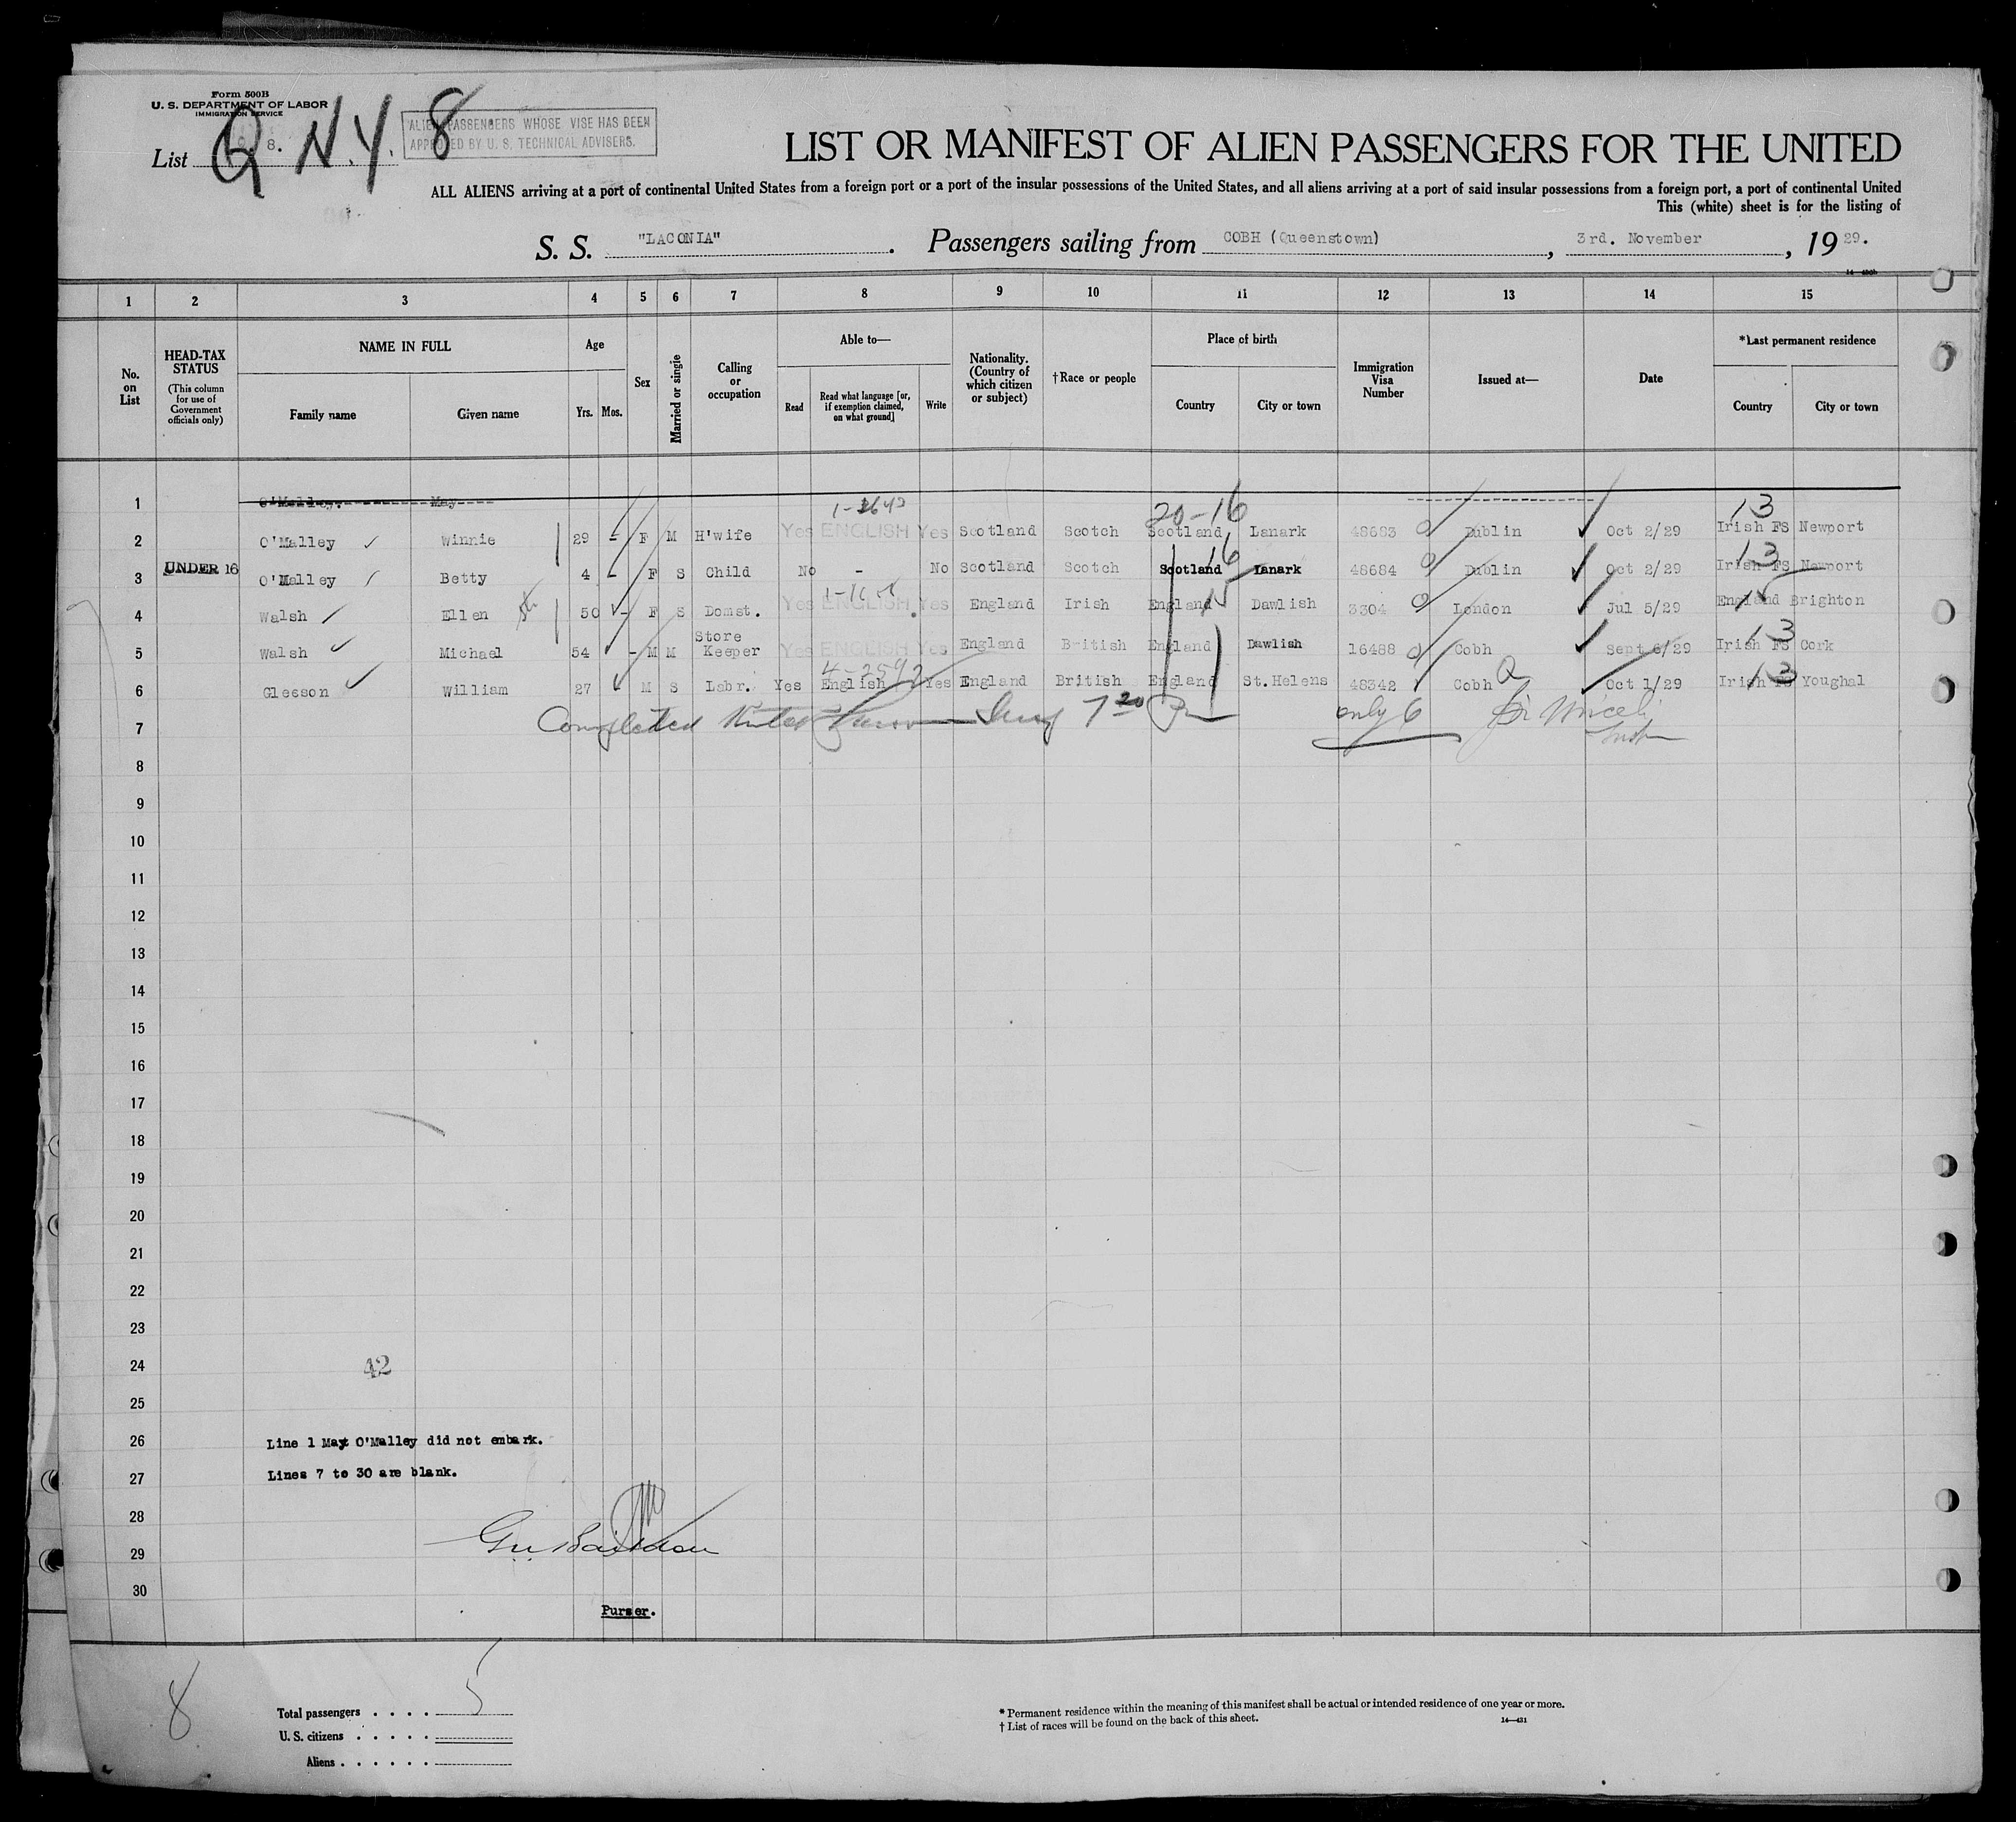 Form 500B
U. S. DEPARTMENT OF LABOR
IMMIGRATION SERVICE
List 8.
Q N.Y. 8
ALIEN PASSENGERS WHOSE VISE HAS BEEN
APPROVED BY U. S. TECHNICAL ADVISERS.
LIST OR MANIFEST OF ALIEN PASSENGERS FOR THE UNITED
ALL ALIENS arriving at a port of continental United States from a foreign port or a port of the insular possessions of the United States, and all aliens arriving at a port of said insular possessions from a foreign port, a port of continental United
This (white) sheet is for the listing of
S. S. "LACONIA". Passengers sailing from COBH (Queenstown), 3rd. November, 1929.
1 2 3 4 5 6 7 8 9 10 11 12 13 14 15
No. on List
HEAD-TAX STATUS (This column for use of Government officials only)
NAME IN FULL
Family name Given name
Age
Yrs. Mos.
Sex
Married or single
Calling or occupation
Able to—
Read Read what language [or, if exemption claimed, on what ground] Write
Nationality. (Country of which citizen or subject)
†Race or people
Place of birth
Country City or town
Immigration Visa Number
Issued at—
Date
*Last permanent residence
Country City or town
1 O'Malley. May
1-2643 20-16 13
2 O'Malley Winnie 29 - F M H'wife Yes ENGLISH Yes Scotland Scotch Scotland Lanark 48683 Dublin Oct 2/29 Irish FS Newport
16 13
3 UNDER 16 O'Malley Betty 4 - F S Child No - No Scotland Scotch Scotland Lanark 48684 Dublin Oct 2/29 Irish FS Newport
4 Walsh Ellen 50 - F S Domst. Yes ENGLISH Yes England Irish England Dawlish 3304 London Jul 5/29 England Brighton
13
5 Walsh Michael 54 - M M Store Keeper Yes ENGLISH Yes England British England Dawlish 16488 Cobh Sept 6/29 Irish FS Cork
4-2592 Q 13
6 Gleeson William 27 M S Labr. Yes English Yes England British England St.Helens 48342 Cobh Oct 1/29 Irish FS Youghal
7 Completed 7 20 Pm only 6
8
9
10
11
12
13
14
15
16
17
18
19
20
21
22
23
24 42
25
26 Line 1 May O'Malley did not embark.
27 Lines 7 to 30 are blank.
28
29
30
Purser.
8
Total passengers . . . . 5
U. S. citizens . . . . .
Aliens . . . . . .
* Permanent residence within the meaning of this manifest shall be actual or intended residence of one year or more.
† List of races will be found on the back of this sheet.
14—431